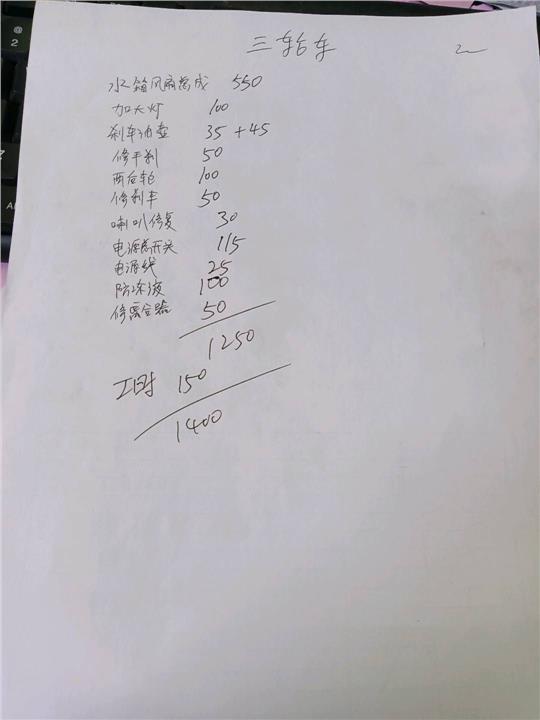 三轮车
水箱风扇总成 550
加大灯 100
刹车油壶 35+45
修手刹 50
两后轮 100
修刹车 50
喇叭修复 30
电源总开关 115
电源线 25
防冻液 100
修离合器 50
1250
工时 150
1400